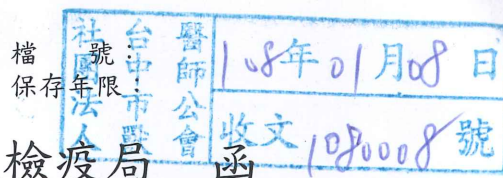 檔　　號：
保存年限：
社團法人
台中市醫
醫師公會
108年01月08日
收文1080008號
檢疫局　函